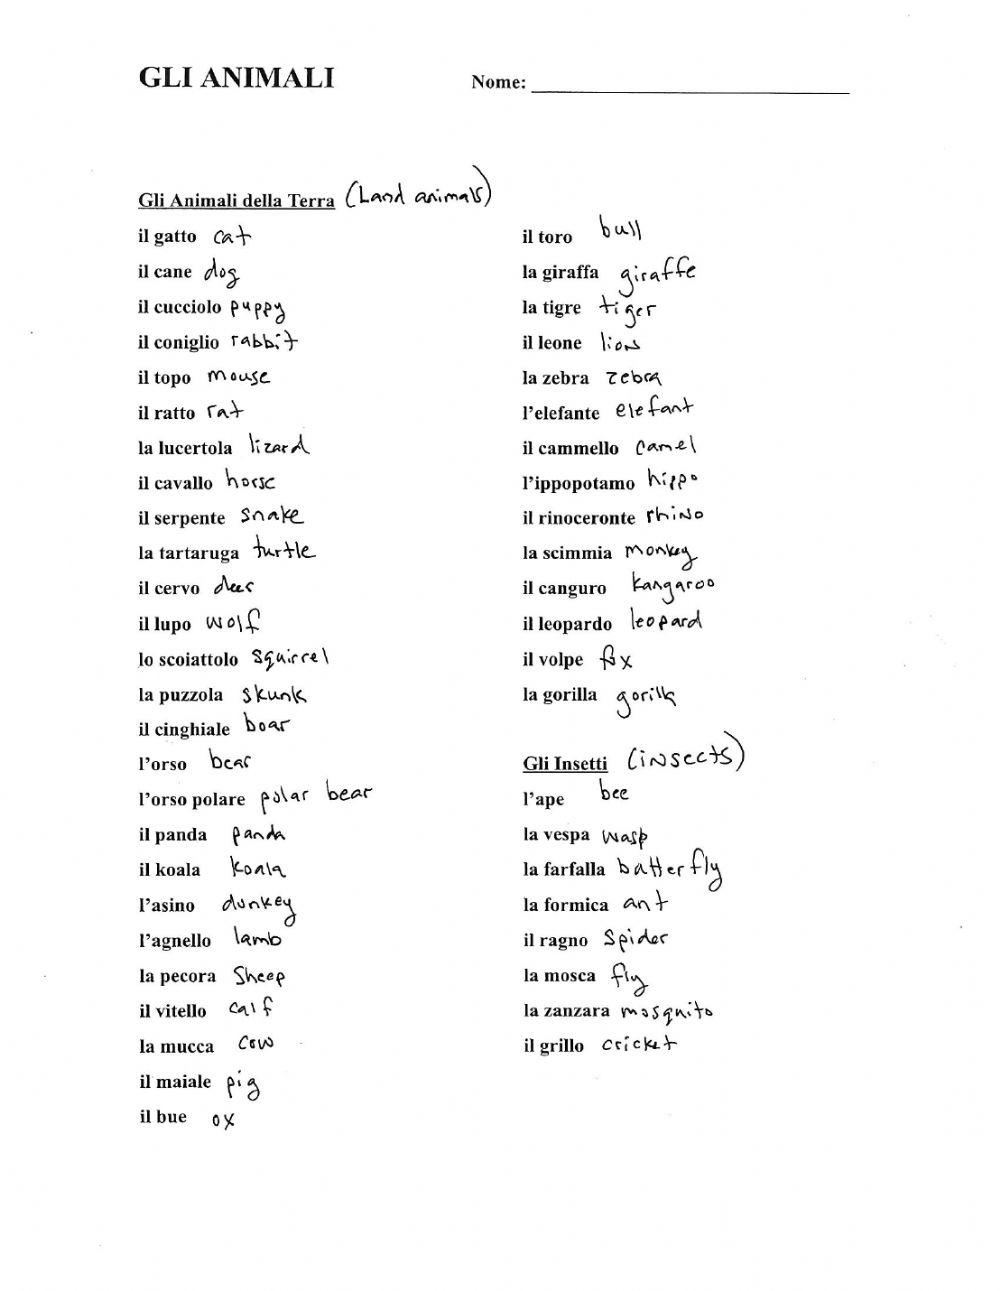 GLI ANIMALI
Nome:
Gli Animali della Terra (Land animals)
il gatto cat
il cane dog
il cucciolo puppy
il coniglio rabbit
il topo mouse
il ratto rat
la lucertola lizard
il cavallo horse
il serpente snake
la tartaruga turtle
il cervo deer
il lupo wolf
lo scoiattolo squirrel
la puzzola skunk
il cinghiale boar
l'orso bear
l'orso polare polar bear
il panda panda
il koala koala
l'asino donkey
l'agnello lamb
la pecora sheep
il vitello calf
la mucca cow
il maiale pig
il bue ox
il toro bull
la giraffa giraffe
la tigre tiger
il leone lion
la zebra zebra
l'elefante elefant
il cammello camel
l'ippopotamo hippo
il rinoceronte rhino
la scimmia monkey
il canguro kangaroo
il leopardo leopard
il volpe fox
la gorilla gorilla
Gli Insetti (insects)
l'ape bee
la vespa wasp
la farfalla butterfly
la formica ant
il ragno spider
la mosca fly
la zanzara mosquito
il grillo cricket